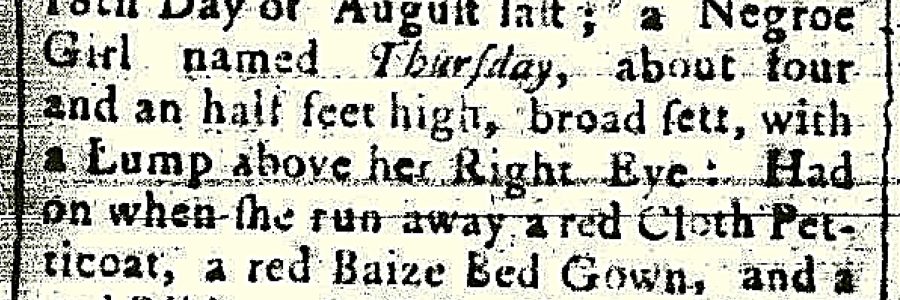 18th Day of Auguſt laſt; a Negroe
Girl named Thurſday, about four
and an half feet high, broad ſett, with
a Lump above her Right Eye: Had
on when ſhe run away a red Cloth Pet-
ticoat, a red Baize Bed Gown, and a